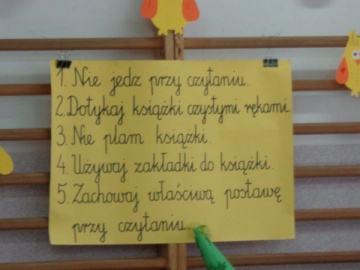 1. Nie jedz przy czytaniu.
2. Dotykaj książki czystymi rękami.
3. Nie plam książki.
4. Używaj zakładki do książki.
5. Zachowaj właściwą postawę
przy czytaniu.